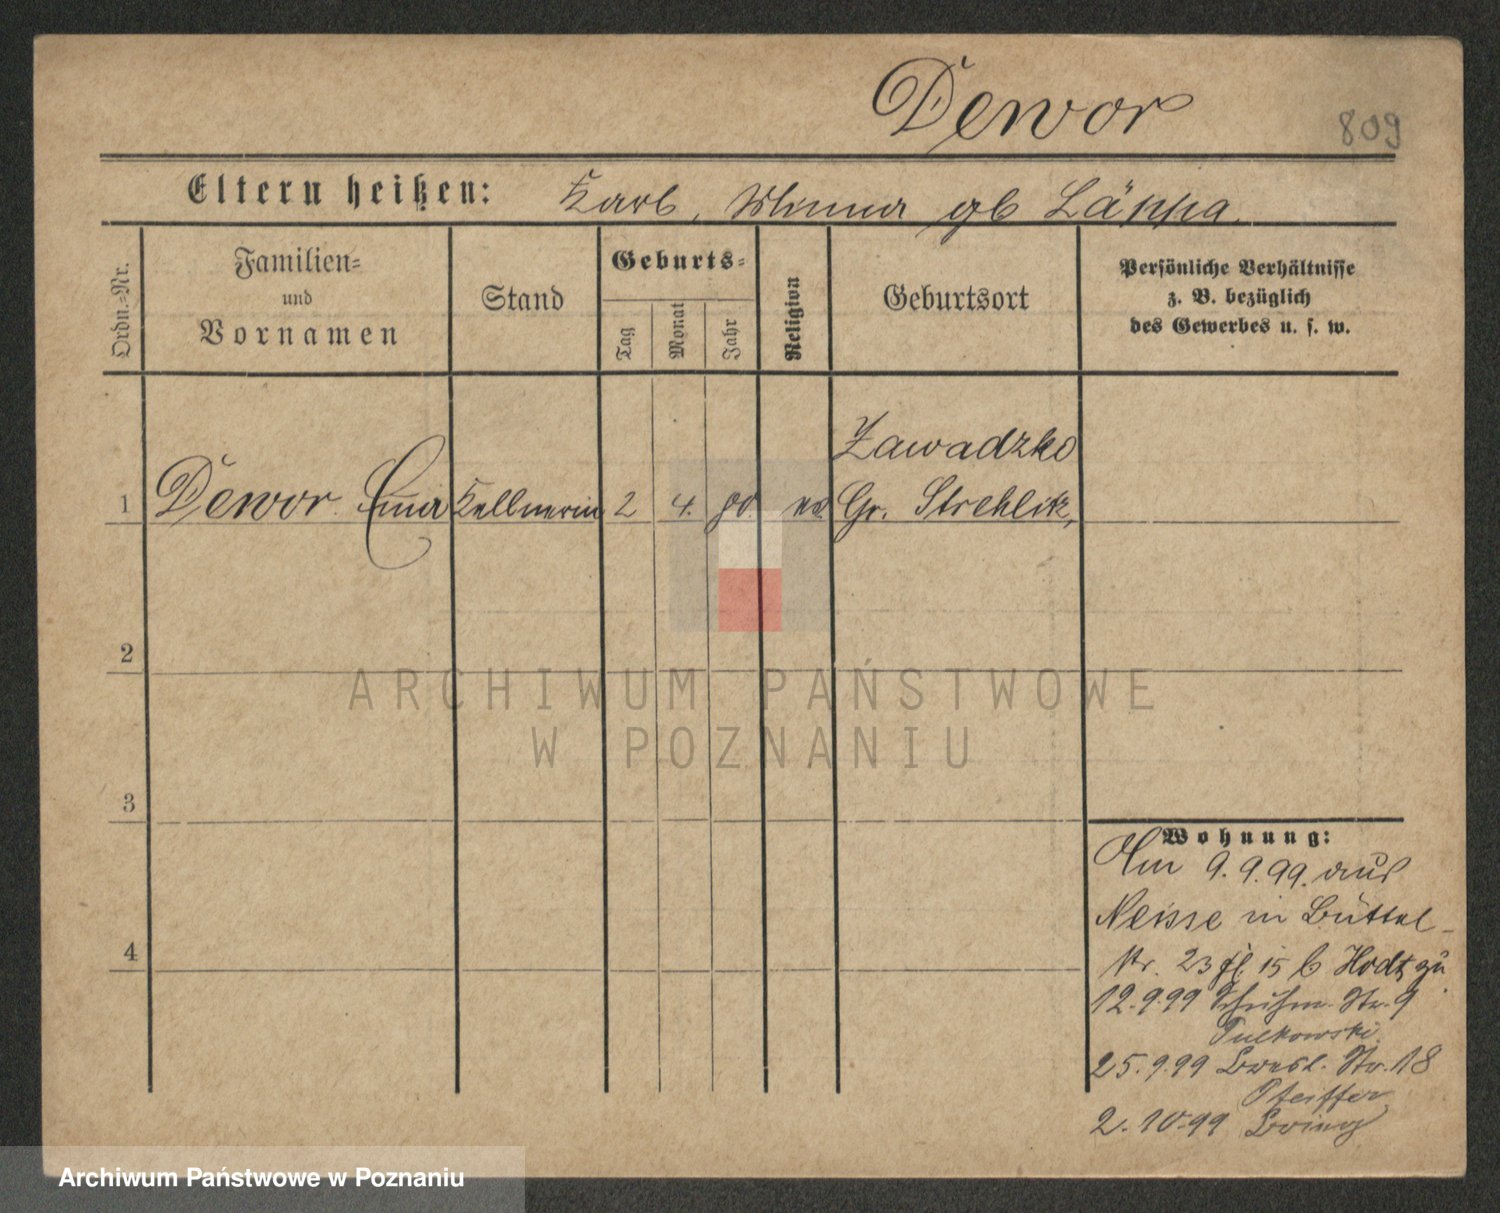 Dewor
809
Eltern heißen: Karl, Minna gb Läppa.
Ordn.-Nr.
Familien-
und
Vornamen
Stand
Geburts-
Tag
Monat
Jahr
Religion
Geburtsort
Persönliche Verhältnisse
z. B. bezüglich
des Gewerbes u. s. w.
Zawadzko
1 Dewor Kellnerin 2 4. 80. Gr. Strehlitz,
2
ARCHIWUM PAŃSTWOWE
W POZNANIU
3
Wohnung:
Am 9.9.99. aus
Neisse in Büttel-
str. 23 15 b zu
12.9.99 Str. 9
Pulkowski.
25.9.99 Bresl. Str. 18
Pfeiffer
4
2.10.99
Archiwum Państwowe w Poznaniu